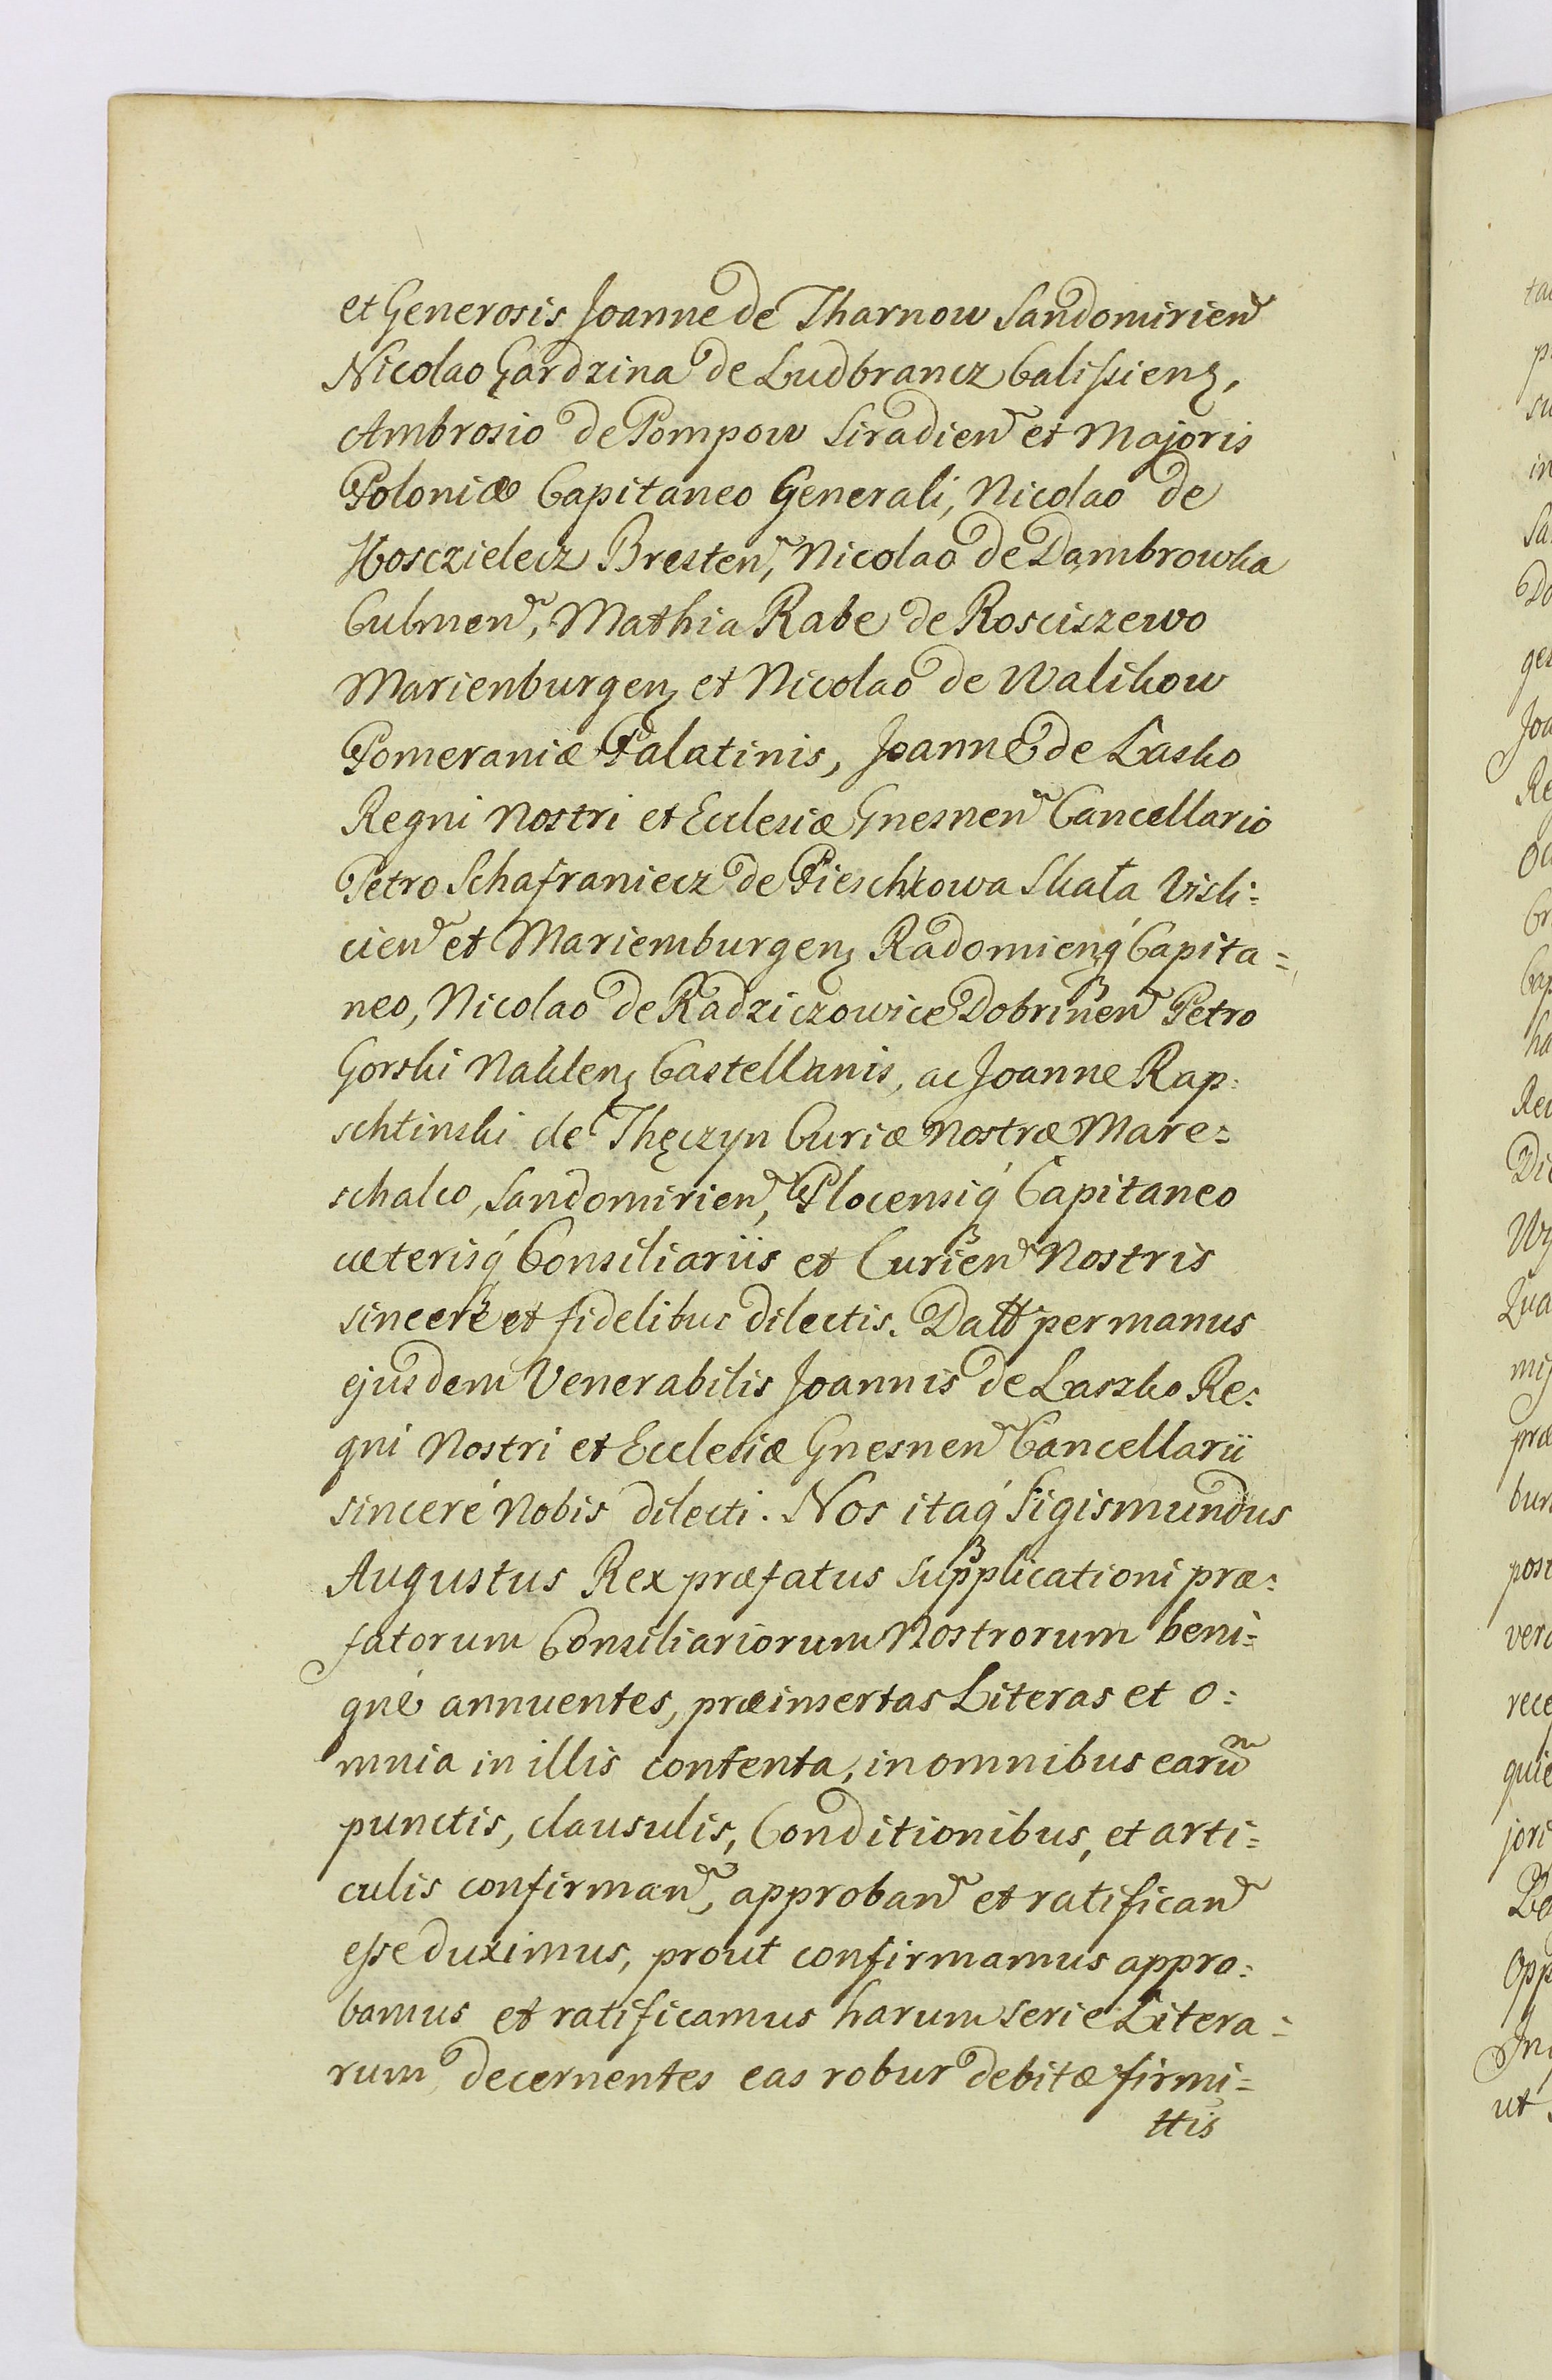 et Generosis Joanne de Tharnow Sandomirien̄
Nicolao Gardzina de Ludbrancz Calissienȝ,
Ambrosio de Pompow Siradien̄ et Majoris
Poloniæ Capitaneo Generali, Nicolao de
Kosczielecz Bresten̄, Nicolao de Dambrowka
Culmen̄, Mathia Rabe de Rosciszewo
Marienburgenȝ et Nicolao de Walikow
Pomeraniæ Palatinis, Joanne de Lasko
Regni Nostri et Ecclesiæ Gnesnen̄ Cancellario
Petro Schafraniecz de Pieschkowa Skała Visli=
cien̄ et Mariemburgenȝ Radomienȝq́ Capita=
neo, Nicolao de Radziczowice Dobrinen̄ Petro
Gorski Naklenȝ Castellanis, ac Joanne Rap=
schtinski de Thęczyn Curiæ Nostræ Mare=
schalco, Sandomirien̄, Plocensiq́ Capitaneo
cæterisq́ Consiliariis et Curien̄ Nostris
sincerè et fidelibus dilectis. Datt per manus
ejusdem Venerabilis Joannis de Laszko Re=
gni Nostri et Ecclesiæ Gnesnen̄ Cancellarii
sincerè Nobis dilecti. Nos itaq́ Sigismundus
Augustus Rex præfatus supplicationi præ=
fatorum Consiliariorum Nostrorum beni=
gnè annuentes, præinsertas Literas et o=
mnia in illis contenta, in omnibus earū
punctis, clausulis, Conditionibus, et arti=
culis confirman̄, approban̄ et ratifican̄
esse duximus, prout confirmamus appro=
bamus et ratificamus harum serie Litera=
rum decernentes eas robur debitæ firmi=
ttis